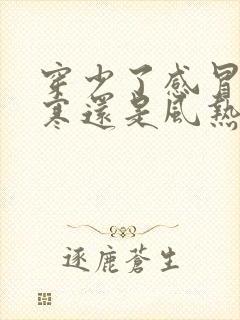 穿少了感冒
寒還是風熱
逐鹿蒼生